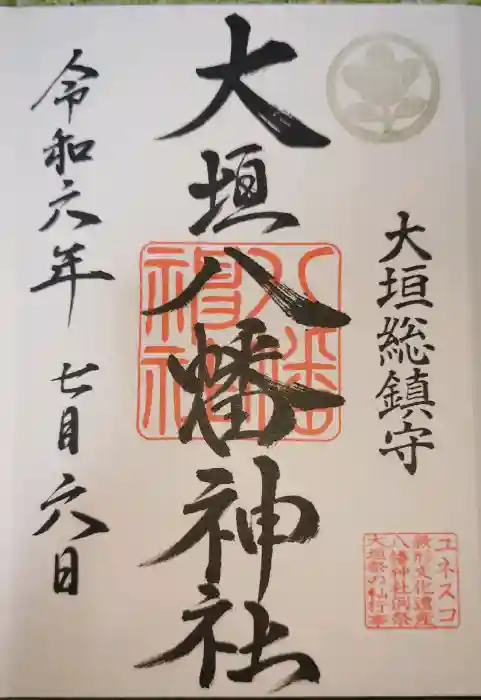 大垣総鎮守
大垣八幡神社
令和六年 七月六日
八幡
神社
ユネスコ
無形文化遺産
八幡神社例祭
大垣祭の𨊂行事